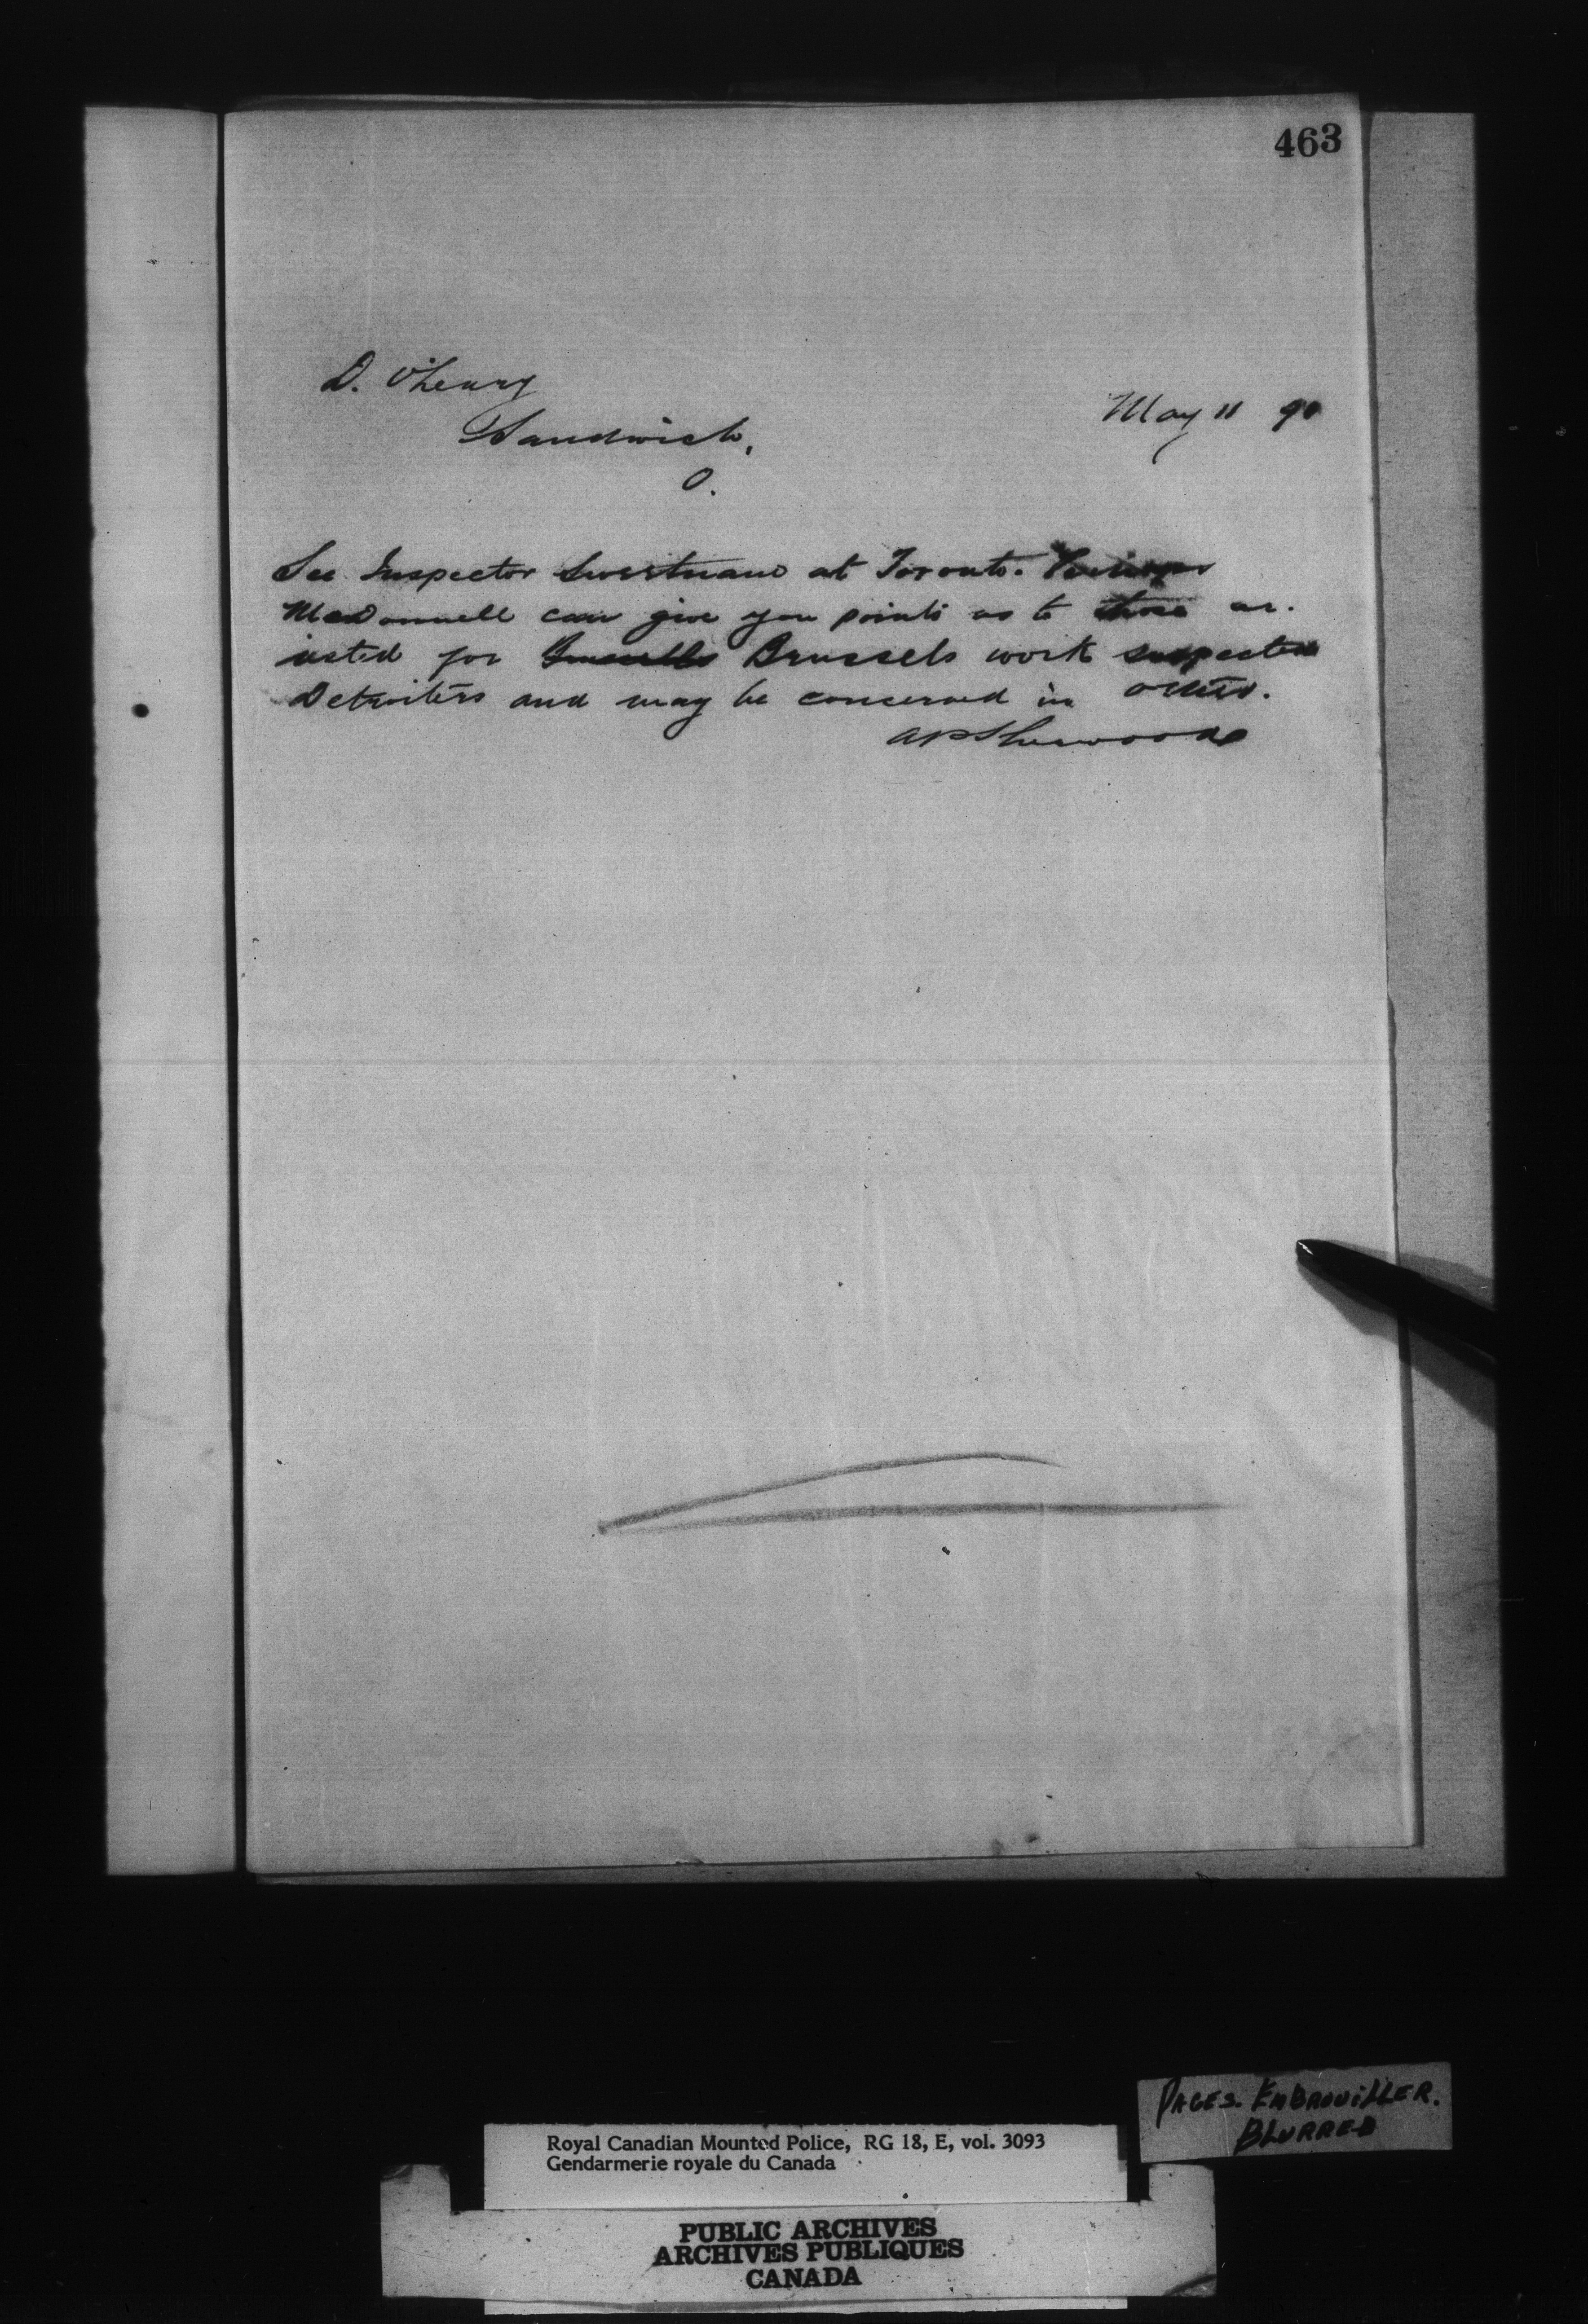 463
D. O'Leary
Sandwich,
O.
May 11 90
See Inspector at Toronto. Perhaps
McDonnell can give you points as to those ar.
rested for Brussels work suspected
Detroiters and may be concerned in others.
APSherwood
PAGES. EMBROUiLLER.
BLURRED
Royal Canadian Mounted Police, RG 18, E, vol. 3093
Gendarmerie royale du Canada
PUBLIC ARCHIVES
ARCHIVES PUBLIQUES
CANADA